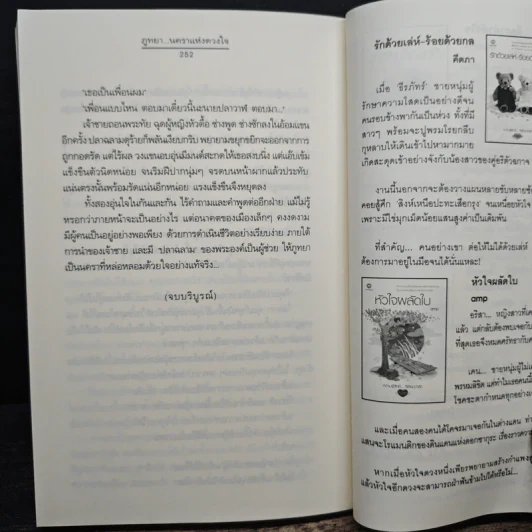 ภูทยา...นคราแห่งดวงใจ
252
"เธอเป็นเพื่อนผม"
"เพื่อนแบบไหน ตอบมาเดี๋ยวนี้นะนายปลาวาฬ ตอบมา..."
เจ้าชายถอนพระทัย ฉุดผู้หญิงหัวดื้อ ช่างพูด ช่างซักลงในอ้อมแขน
อีกครั้ง ปลาฉลามดุร้ายก็พลันเงียบกริบ พยายามขยุกขยิกจะออกจากการ
ถูกกอดรัด แต่ไร้ผล วงแขนอบอุ่นมีมนต์สะกดให้เธอสงบนิ่ง แต่แอ๊บเข้ม
แข็งขืนตัวนิดหน่อย จนริมฝีปากนุ่มๆ จรดบนหน้าผากแล้วประทับ
แน่นตรงนั้นพร้อมรัดแน่นอีกหน่อย แรงแข็งขืนจึงหยุดลง
ทั้งสองอุ่นใจในกันและกัน ไร้คำถามและคำพูดต่ออีกฝ่าย แม้ไม่รู้
หรอกว่าภายหน้าจะเป็นอย่างไร แต่อนาคตของเมืองเล็กๆ คงงดงาม
มีผู้คนเป็นอยู่อย่างพอเพียง ด้วยการดำเนินชีวิตอย่างเรียบง่าย ภายใต้
การนำของเจ้าชาย และมี 'ปลาฉลาม' ของพระองค์เป็นผู้ช่วย ให้ภูทยา
เป็นนคราที่หล่อหลอมด้วยใจอย่างแท้จริง...
(จบบริบูรณ์)
รักด้วยเล่ห์-ร้อยด้วยกล
คีตภา
เมื่อ 'ธีรภัทร์' ชายหนุ่มผู้
รักษาความโสดเป็นอย่างดีจน
คนรอบข้างพากันเป็นห่วง ทั้งที่มี
สาวๆ พร้อมจะปูพรมโรยกลีบ
กุหลาบให้เดินเข้าไปหามากมาย
เกิดสะดุดเข้าอย่างจังกับน้องสาวของคู่อริตัวกาจ
งานนี้นอกจากจะต้องวางแผนหลายขับหลายขั้น
คอยสู้ศึก 'สิงห์เหนือปะทะเสือกรุง' จนเหนื่อยหัวใจ
เพราะมีไข่มุกเม็ดน้อยแสนสูงค่าเป็นเดิมพัน
ที่สำคัญ... คนอย่างเขา ต่อให้ไม่ได้ด้วยเล่ห์
ต้องการมาอยู่ในมือจนได้นั่นแหละ!
หัวใจผลัดใบ
amp
หัวใจผลัดใบ
อริสา... หญิงสาวที่
แล้ว แต่กลับต้องพบเจอกับ
ที่สุดเธอจึงหมดศรัทธากับ
เคน... ชายหนุ่มผู้ไม่
พรหมลิขิต แต่ทำไมเธอคนนี้
โชคชะตากำหนดทุกอย่าง
และเมื่อคนสองคนได้โคจรมาเจอกันในต่างแดน
แสนจะโรแมนติกของดินแดนแห่งดอกซากุระ
หากเมื่อหัวใจดวงหนึ่งเพียรพยายามสร้างกำแพง
แล้วหัวใจอีกดวงจะสามารถฝ่าฟันข้ามไปได้หรือไม่...